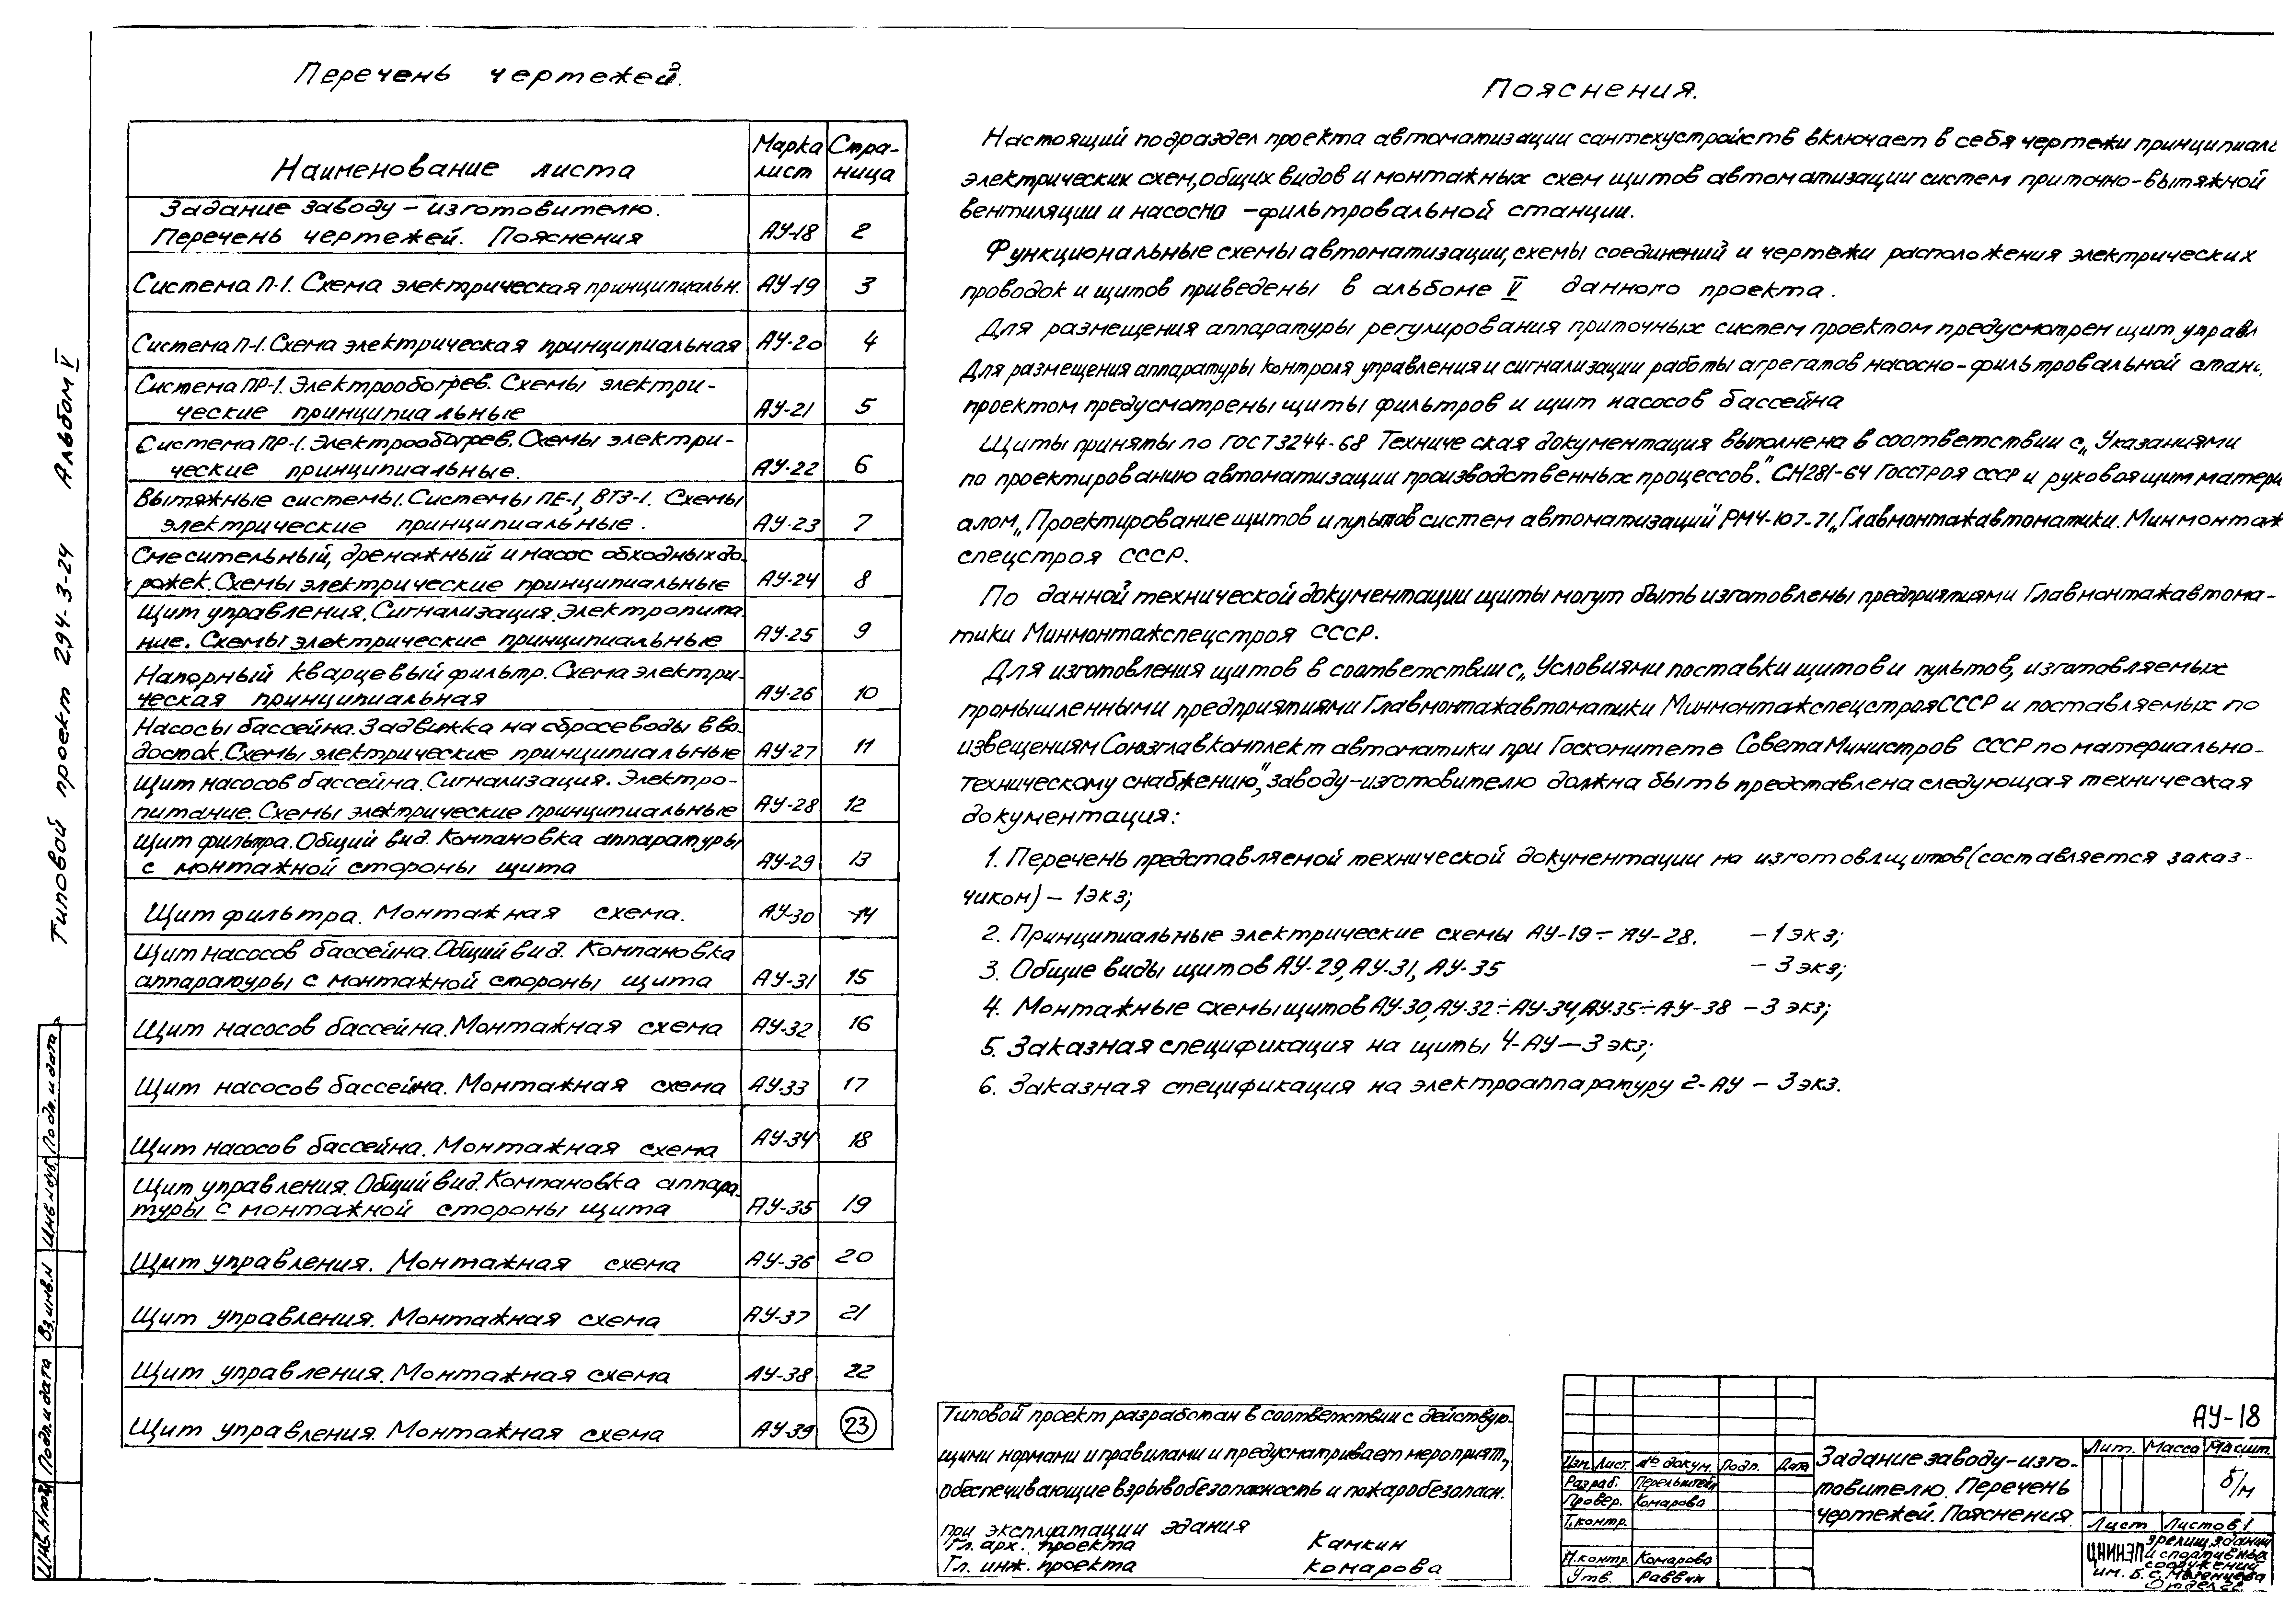 Перечень чертежей.
Наименование листа
Марка лист
Стра-
ница
Задание заводу – изготовителю.
Перечень чертежей. Пояснения АУ-18 2
Система П-1. Схема электрическая принципиальн. АУ-19 3
Система П-1. Схема электрическая принципиальная АУ-20 4
Система ПР-1. Электрообогрев. Схемы электри-
ческие принципиальные АУ-21 5
Система ПР-1. Электрообогрев. Схемы электри-
ческие принципиальные. АУ-22 6
Вытяжные системы. Системы ПЕ-1, ВТЗ-1. Схемы
электрические принципиальные. АУ-23 7
Смесительный, дренажный и насос обходных до-
рожек. Схемы электрические принципиальные АУ-24 8
Щит управления. Сигнализация. Электропита-
ние. Схемы электрические принципиальные АУ-25 9
Напорный кварцевый фильтр. Схема электри-
ческая принципиальная АУ-26 10
Насосы бассейна. Задвижка на сбросе воды в во-
досток. Схемы электрические принципиальные АУ-27 11
Щит насосов бассейна. Сигнализация. Электро-
питание. Схемы электрические принципиальные АУ-28 12
Щит фильтра. Общий вид. Компановка аппаратуры
с монтажной стороны щита АУ-29 13
Щит фильтра. Монтажная схема. АУ-30 14
Щит насосов бассейна. Общий вид. Компановка
аппаратуры с монтажной стороны щита АУ-31 15
Щит насосов бассейна. Монтажная схема АУ-32 16
Щит насосов бассейна. Монтажная схема АУ-33 17
Щит насосов бассейна. Монтажная схема АУ-34 18
Щит управления. Общий вид. Компановка аппара-
туры с монтажной стороны щита АУ-35 19
Щит управления. Монтажная схема АУ-36 20
Щит управления. Монтажная схема АУ-37 21
Щит управления. Монтажная схема АУ-38 22
Щит управления. Монтажная схема АУ-39 23
Пояснения.
Настоящий подраздел проекта автоматизации сантехустройств включает в себя чертежи принципиаль
электрических схем, общих видов и монтажных схем щитов автоматизации систем приточно-вытяжной
вентиляции и насосно –фильтровальной станции.
Функциональные схемы автоматизации, схемы соединений и чертежи расположения электрических
проводок и щитов приведены в альбоме V данного проекта.
Для размещения аппаратуры регулирования приточных систем проектом предусмотрен щит управл
Для размещения аппаратуры контроля управления и сигнализации работы агрегатов насосно-фильтровальной стан
проектом предусмотрены щиты фильтров и щит насосов бассейна
Щиты приняты по ГОСТ3244-68 Техническая документация выполнена в соответствии с „Указаниями
по проектированию автоматизации производственных процессов." СН281-64 Госстроя СССР и руковоящим матери
алом „Проектирование щитов и пультов систем автоматизаций" РМ4-107-71 „Главмонтажавтоматики. Минмонтаж
спецстроя СССР.
По данной технической документации щиты могут быть изготовлены предприятиями Главмонтажавтома-
тики Минмонтажспецстроя СССР.
Для изготовления щитов в соответствии с „Условиями поставки щитов и пультов, изготавляемых
промышленными предприятиями Главмонтажавтоматики Минмонтажспецстроя СССР и поставляемых по
извещениям Союзглавкомплект автоматики при Госкомитете Совета Министров СССР по материально-
техническому снабжению", заводу-изготовителю должна быть представлена следующая техническая
документация:
1. Перечень представляемой технической документации на изготовл щитов (составляется заказ-
чиком) – 1экз;
2. Принципиальные электрические схемы АУ-19÷АУ-28. – 1 экз;
3. Общие виды щитов АУ-29, АУ-31, АУ-35 – 3 экз;
4. Монтажные схемы щитов АУ-30, АУ-32÷АУ-34, АУ-35÷АУ-38 – 3 экз;
5. Заказная спецификация на щиты 4-АУ – 3 экз;
6. Заказная спецификация на электроаппаратуру 2-АУ – 3 экз.
Типовой проект 294-3-24 Альбом V
Подп. и дата
Взинв.н
Подп. и дата
Типовой проект разработан в соответствии с действую-
щими нормами и правилами и предусматривает мероприят.,
обеспечивающие взрывобезопасность и пожаробезопасн.
при эксплуатации здания
Гл. арх. проекта Камкин
Гл. инж. проекта Комарова
АУ-18
Изм. Лист. № докум. Подп. Дата
Разраб. Перельштейн
Провер. Комарова
Т.контр.
Н.контр. Комарова
Утв. Раввин
Задание заводу-изго-
товителю. Перечень
чертежей. Пояснения.
Лит. Масса Масшт.
б/м
Лист Листов 1
ЦНИИЭП
зрелищ. зданий
и спортивных
сооружений
им. Б.С. Мезенцева